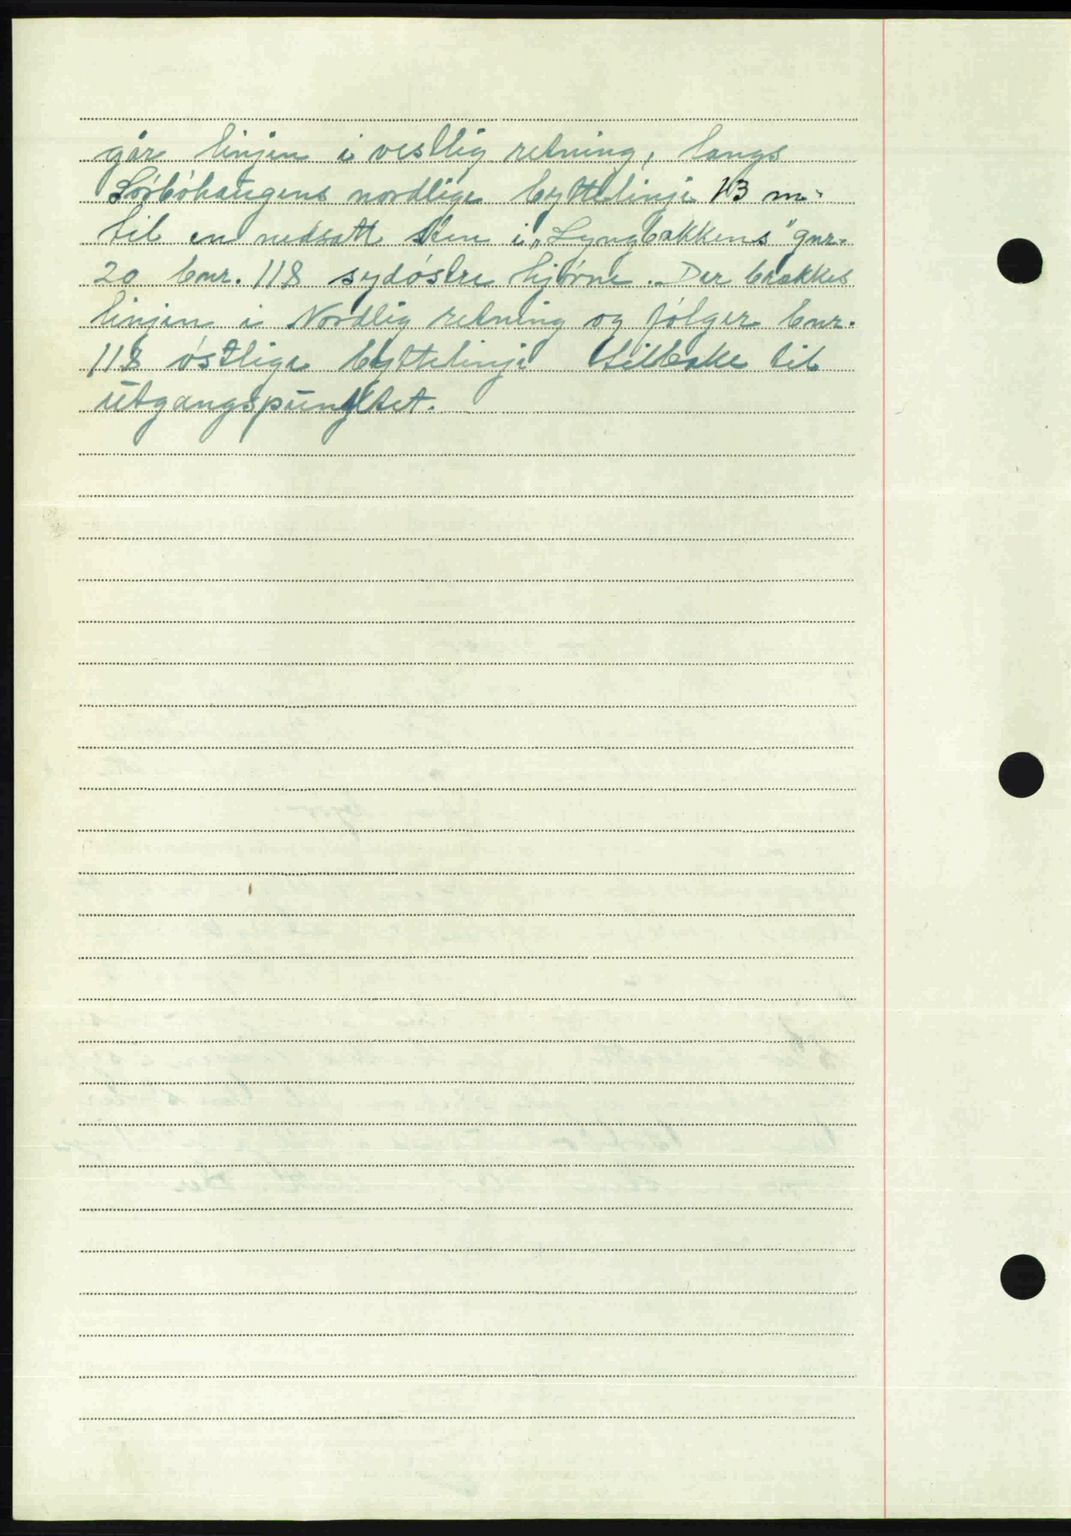 går linjen i vestlig retning, langs
Sörböhaugens nordlige byttelinje 13 m.
til en nedsatt sten i „Lyngbakkens" gnr.
20 bnr. 118 sydöstre hjörne. Der brækkes
linjen i Nordlig retning og fölger bnr.
118 östlige byttelinje tilbake til
utgangspunktet.